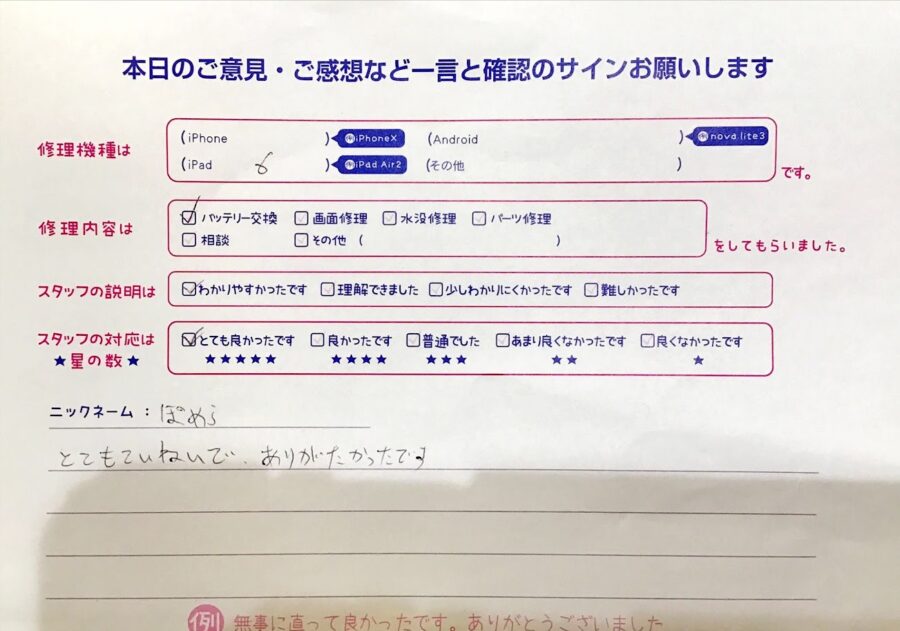 本日のご意見・ご感想など一言と確認のサインお願いします
修理機種は (iPhone ) iPhoneX (Android ) nova lite3
(iPad 6 ) iPad Air2 (その他 ) です。
修理内容は ☑バッテリー交換 □画面修理 □水没修理 □パーツ修理
□相談 □その他 ( ) をしてもらいました。
スタッフの説明は ☑わかりやすかったです □理解できました □少しわかりにくかったです □難しかったです
スタッフの対応は ☑とても良かったです □良かったです □普通でした □あまり良くなかったです □良くなかったです
★星の数★ ★★★★★ ★★★★ ★★★ ★★ ★
ニックネーム：ぽめら
とてもていねいで、ありがたかったです
例 無事に直って良かったです。ありがとうございました